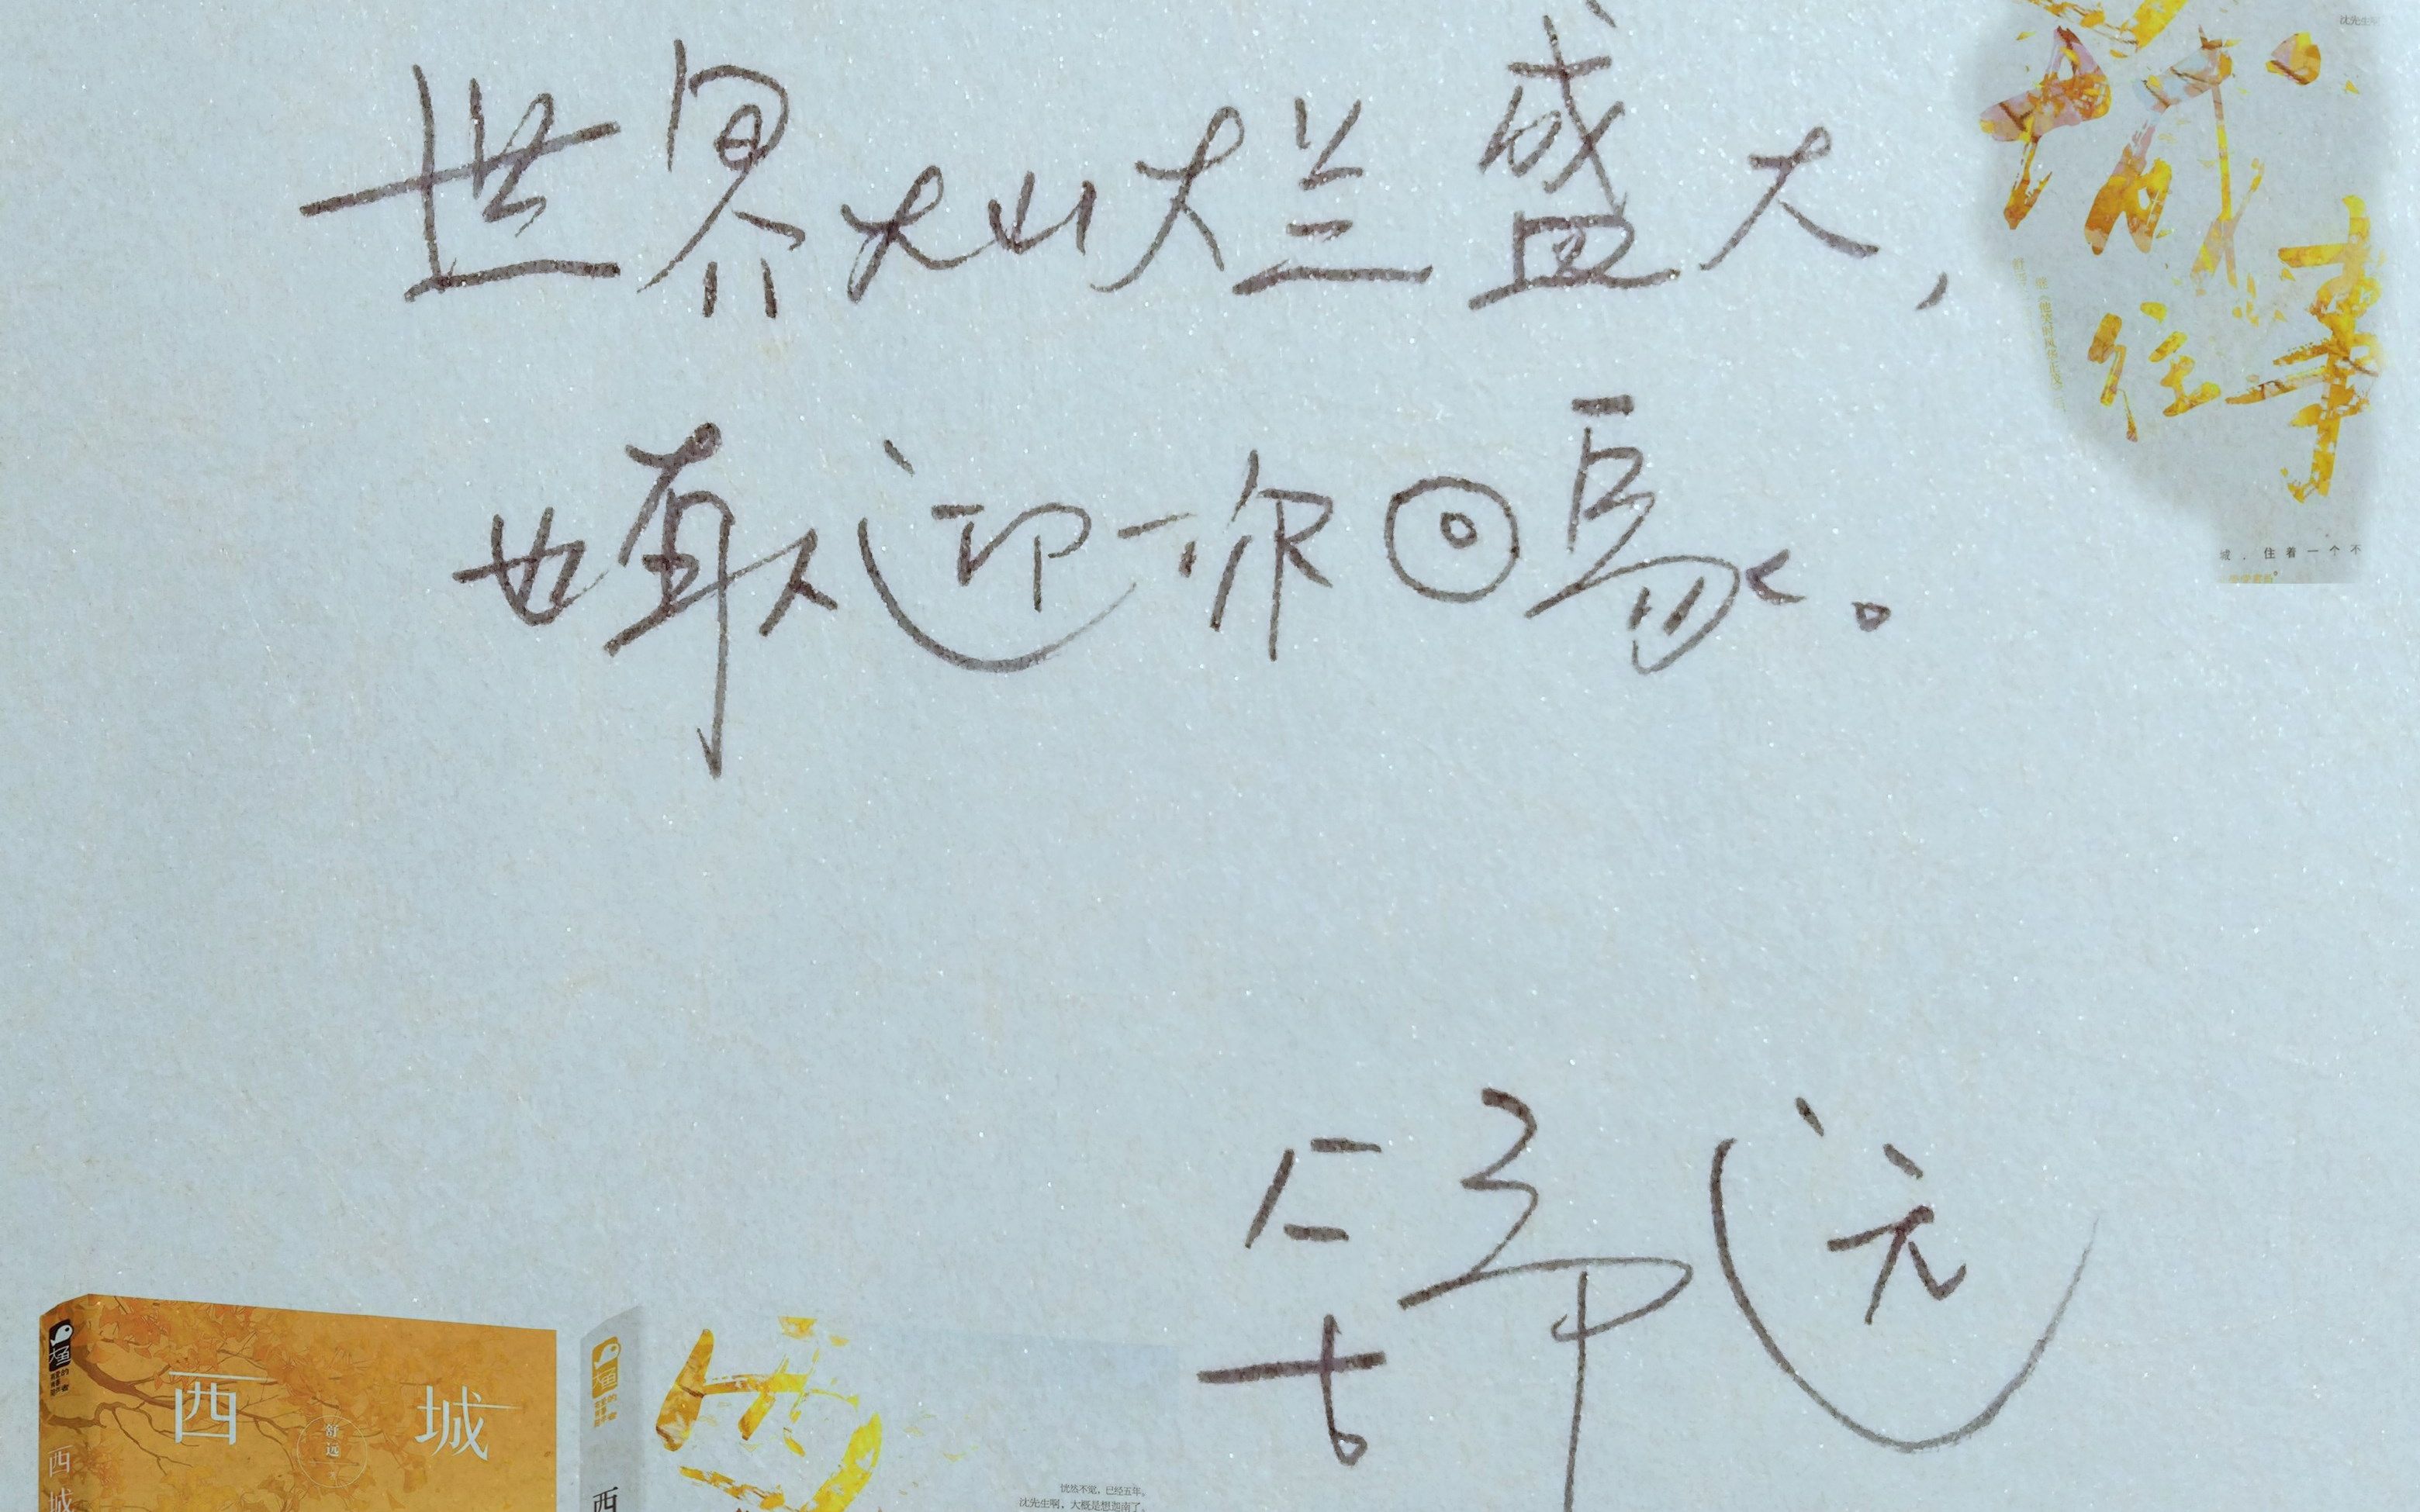 沈先生啊
世界灿烂盛大，
往事
欢迎你回家。
城，住着一个不
舒远
大鱼
西城
舒远
西城
大鱼
西
恍然不觉，已经五年。
沈先生啊，大概是想迦南了。